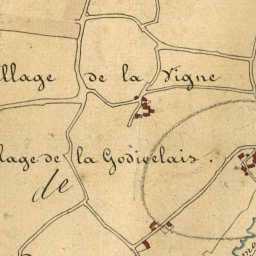 llage de la Vigne
lage de la Godivelais.
de